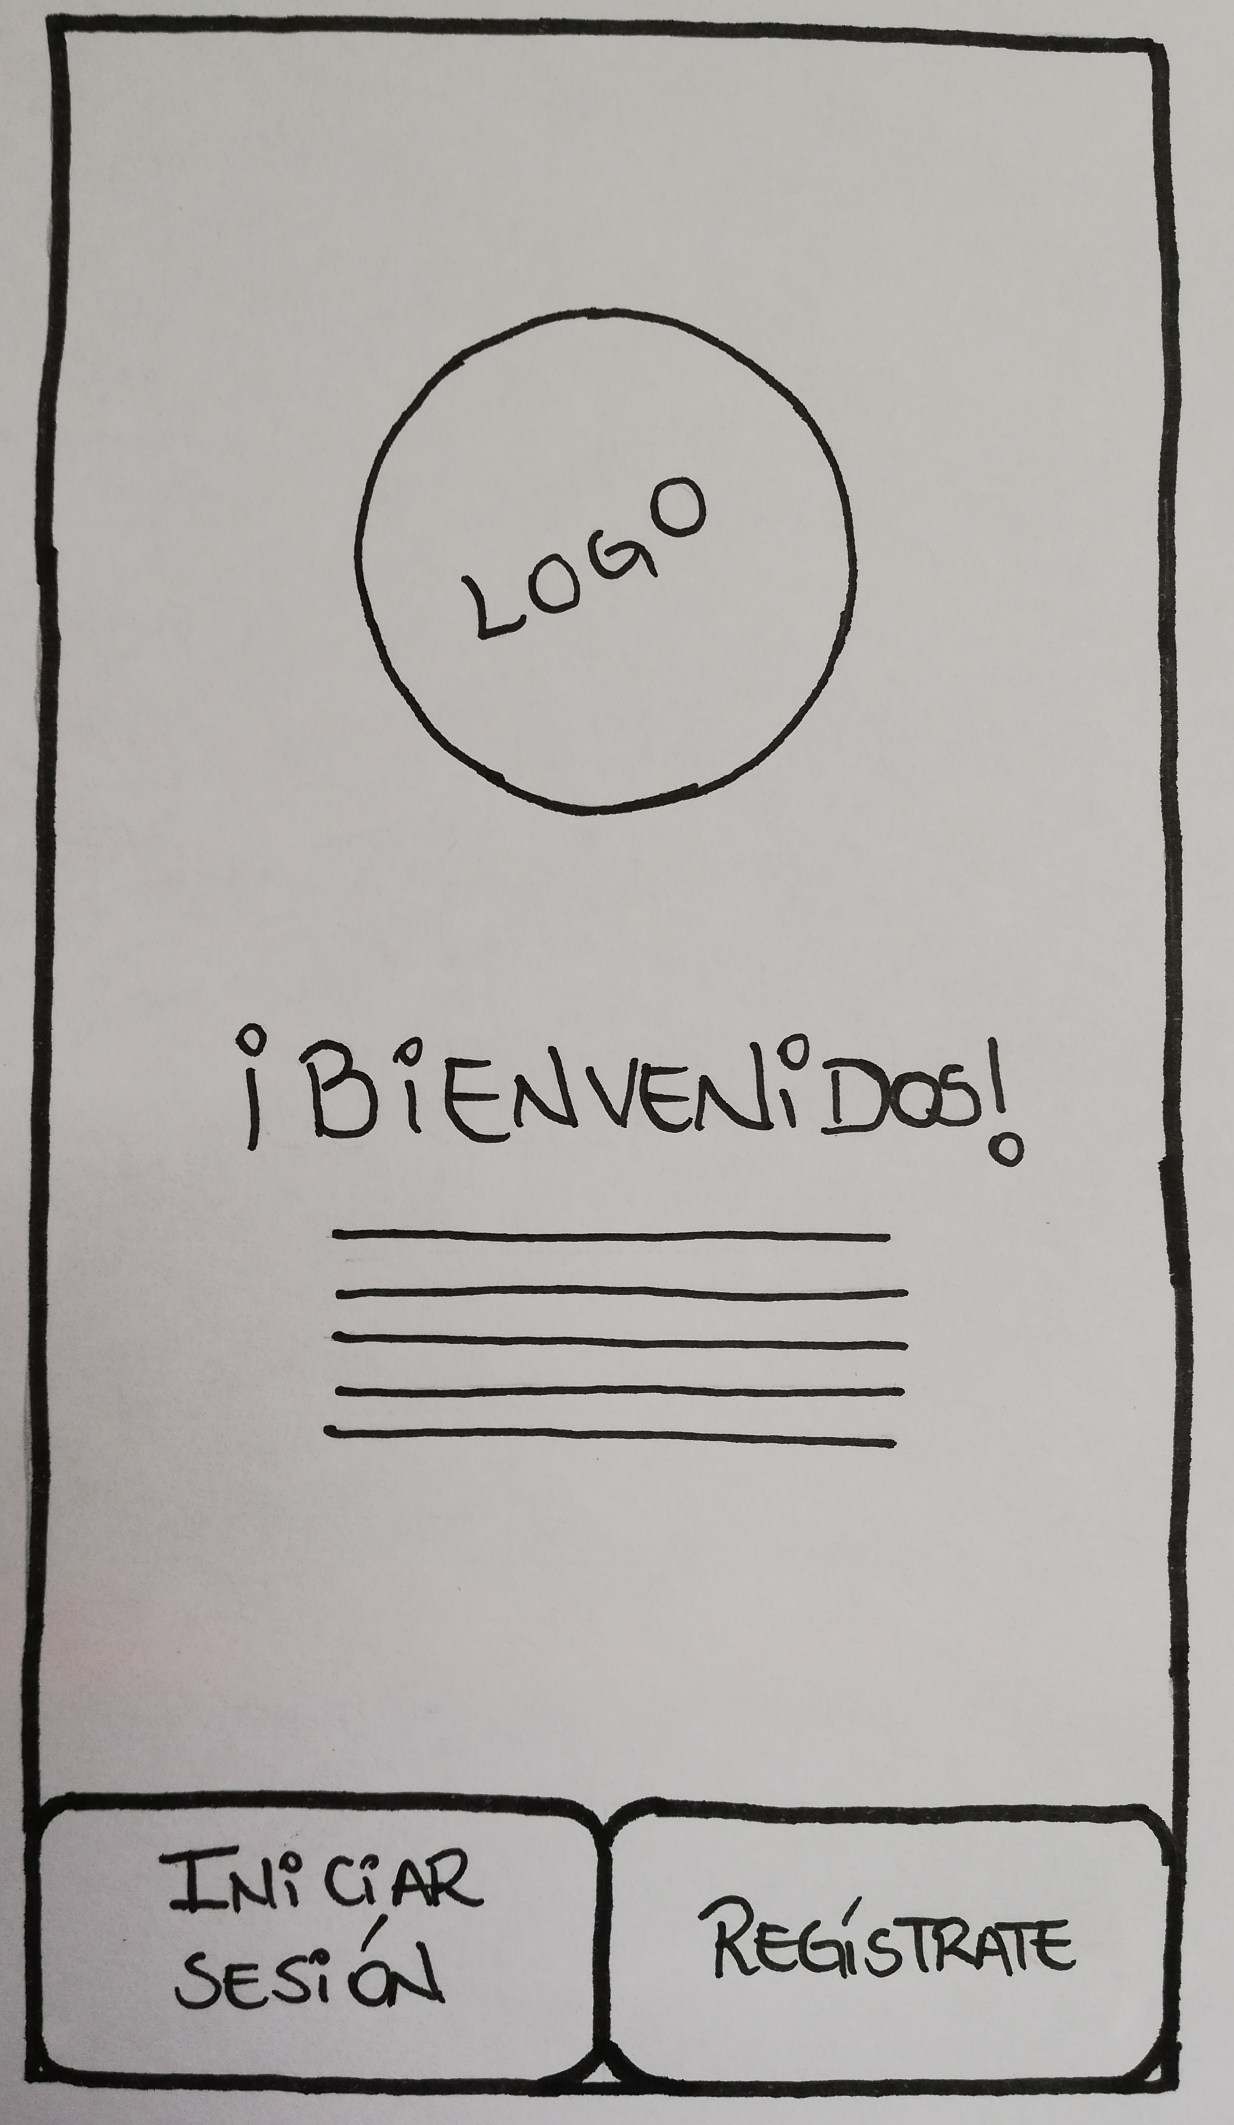 LOGO
¡BiENVENiDOS!
INiCiAR
SESiÓN
REGíSTRATE